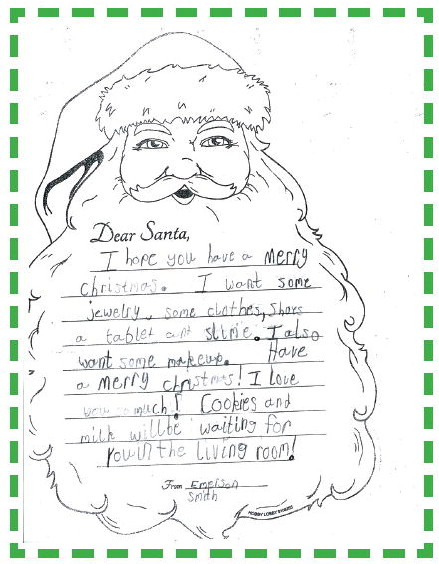 Dear Santa,
I hope you have a merry
christmas. I want some
jewelry, some clothes, shoes
a tablet ant slime. I also
want some makeup. Have
a merry christmas! I love
you so much! Cookies and
milk will be waiting for
you in the living room!
From Emerson
Smith
HOBBY LOBBY STORES